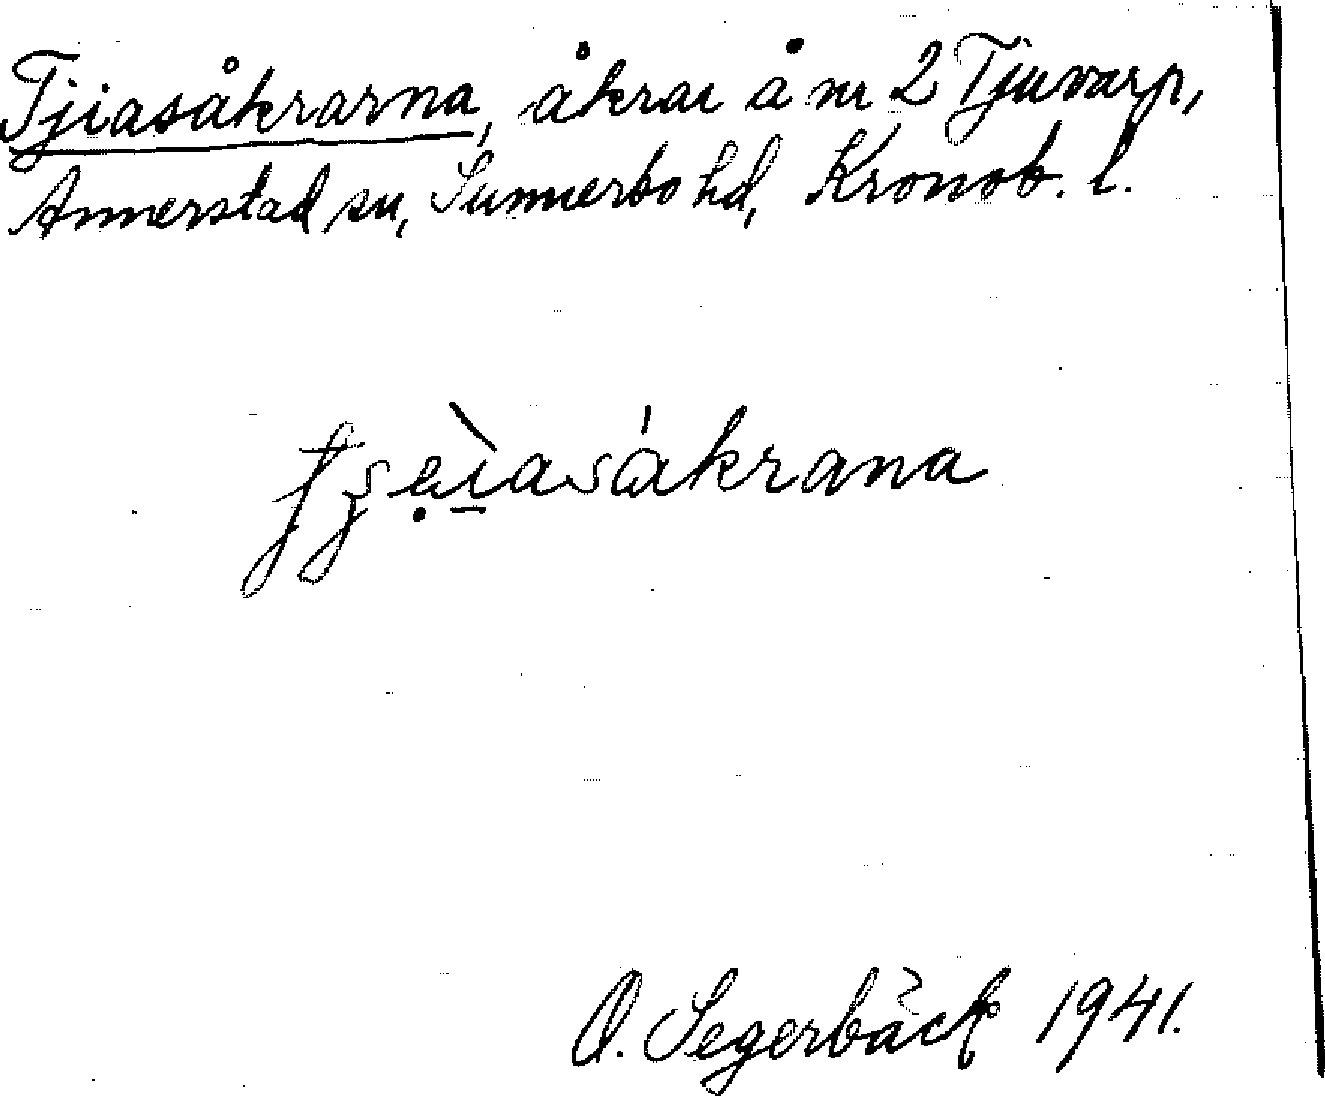 Tjiasåkrarna, åkrar å nr 2 Tjuvarp,
Annerstad sn, Sunnerbo hd, Kronob. l.
O. Segerbäck 1941.